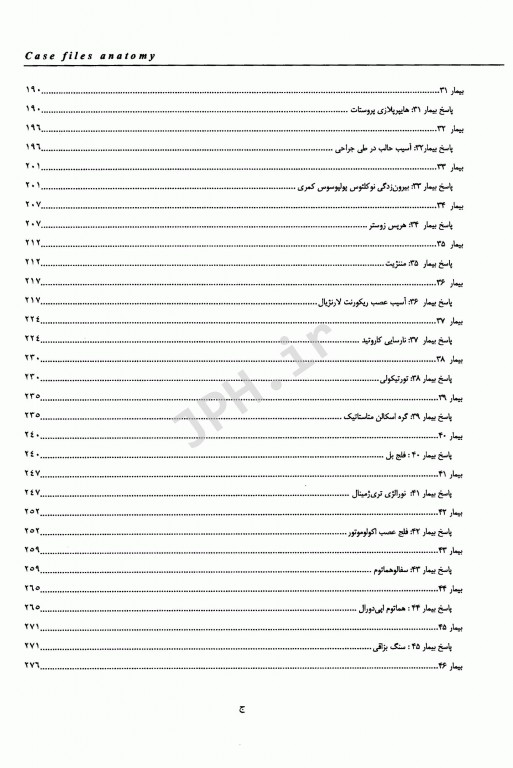 Case files anatomy
بیمار ۳۱................۱۹۰
پاسخ بیمار ۳۱: هایپرپلازی پروستات ................۱۹۰
بیمار ۳۲................۱۹٦
پاسخ بیمار۳۲: آسیب حالب در طی جراحی ................۱۹٦
بیمار ۳۳................۲۰۱
پاسخ بیمار ۳۳: بیرون‌زدگی نوکلئوس پولپوسوس کمری ................۲۰۱
بیمار ۳۴................۲۰۷
پاسخ بیمار ۳۴: هرپس زوستر ................۲۰۷
بیمار ۳۵................۲۱۲
پاسخ بیمار ۳۵: مننژیت ................۲۱۲
بیمار ۳۶................۲۱۷
پاسخ بیمار ۳۶: آسیب عصب ریکورنت لارنژیال ................۲۱۷
بیمار ۳۷................۲۲٤
پاسخ بیمار ۳۷: نارسایی کاروتید ................۲۲٤
بیمار ۳۸................۲۳۰
پاسخ بیمار ۳۸: تورتیکولی ................۲۳۰
بیمار ۳۹................۲۳۵
پاسخ بیمار ۳۹: گره اسکالن متاستاتیک ................۲۳۵
بیمار ۴۰................۲٤۰
پاسخ بیمار ۴۰ : فلج بل ................۲٤۰
بیمار ۴۱................۲٤۷
پاسخ بیمار ۴۱: نورالژی تری‌ژمینال ................۲٤۷
بیمار ۴۲................۲۵۲
پاسخ بیمار ۴۲: فلج عصب اکولوموتور ................۲۵۲
بیمار ۴۳................۲۵۹
پاسخ بیمار ۴۳: سفالوهماتوم ................۲۵۹
بیمار ۴۴................۲٦۵
پاسخ بیمار ۴۴ : هماتوم اپی‌دورال ................۲٦۵
بیمار ۴۵................۲۷۱
پاسخ بیمار ۴۵ : سنگ بزاقی ................۲۷۱
بیمار ۴۶................۲۷٦
ج
JPH.ir